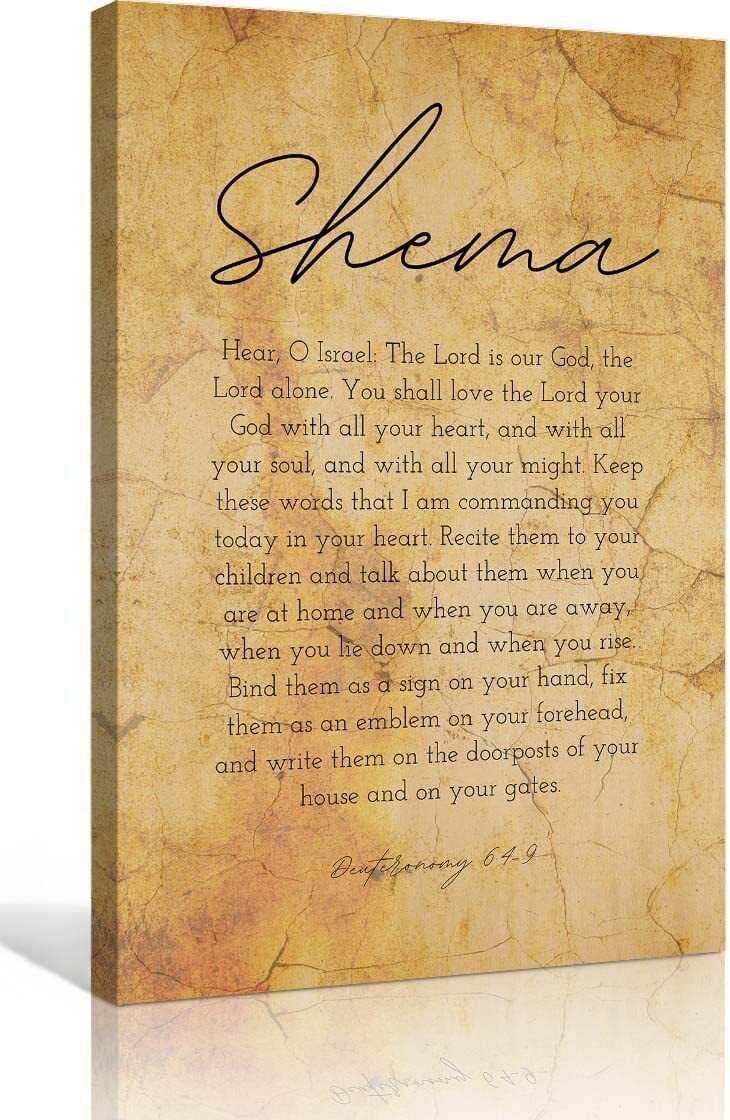 Shema
Hear, O Israel: The Lord is our God, the
Lord alone. You shall love the Lord your
God with all your heart, and with all
your soul, and with all your might. Keep
these words that I am commanding you
today in your heart. Recite them to your
children and talk about them when you
are at home and when you are away,
when you lie down and when you rise.
Bind them as a sign on your hand, fix
them as an emblem on your forehead,
and write them on the doorposts of your
house and on your gates.
Deuteronomy 64-9